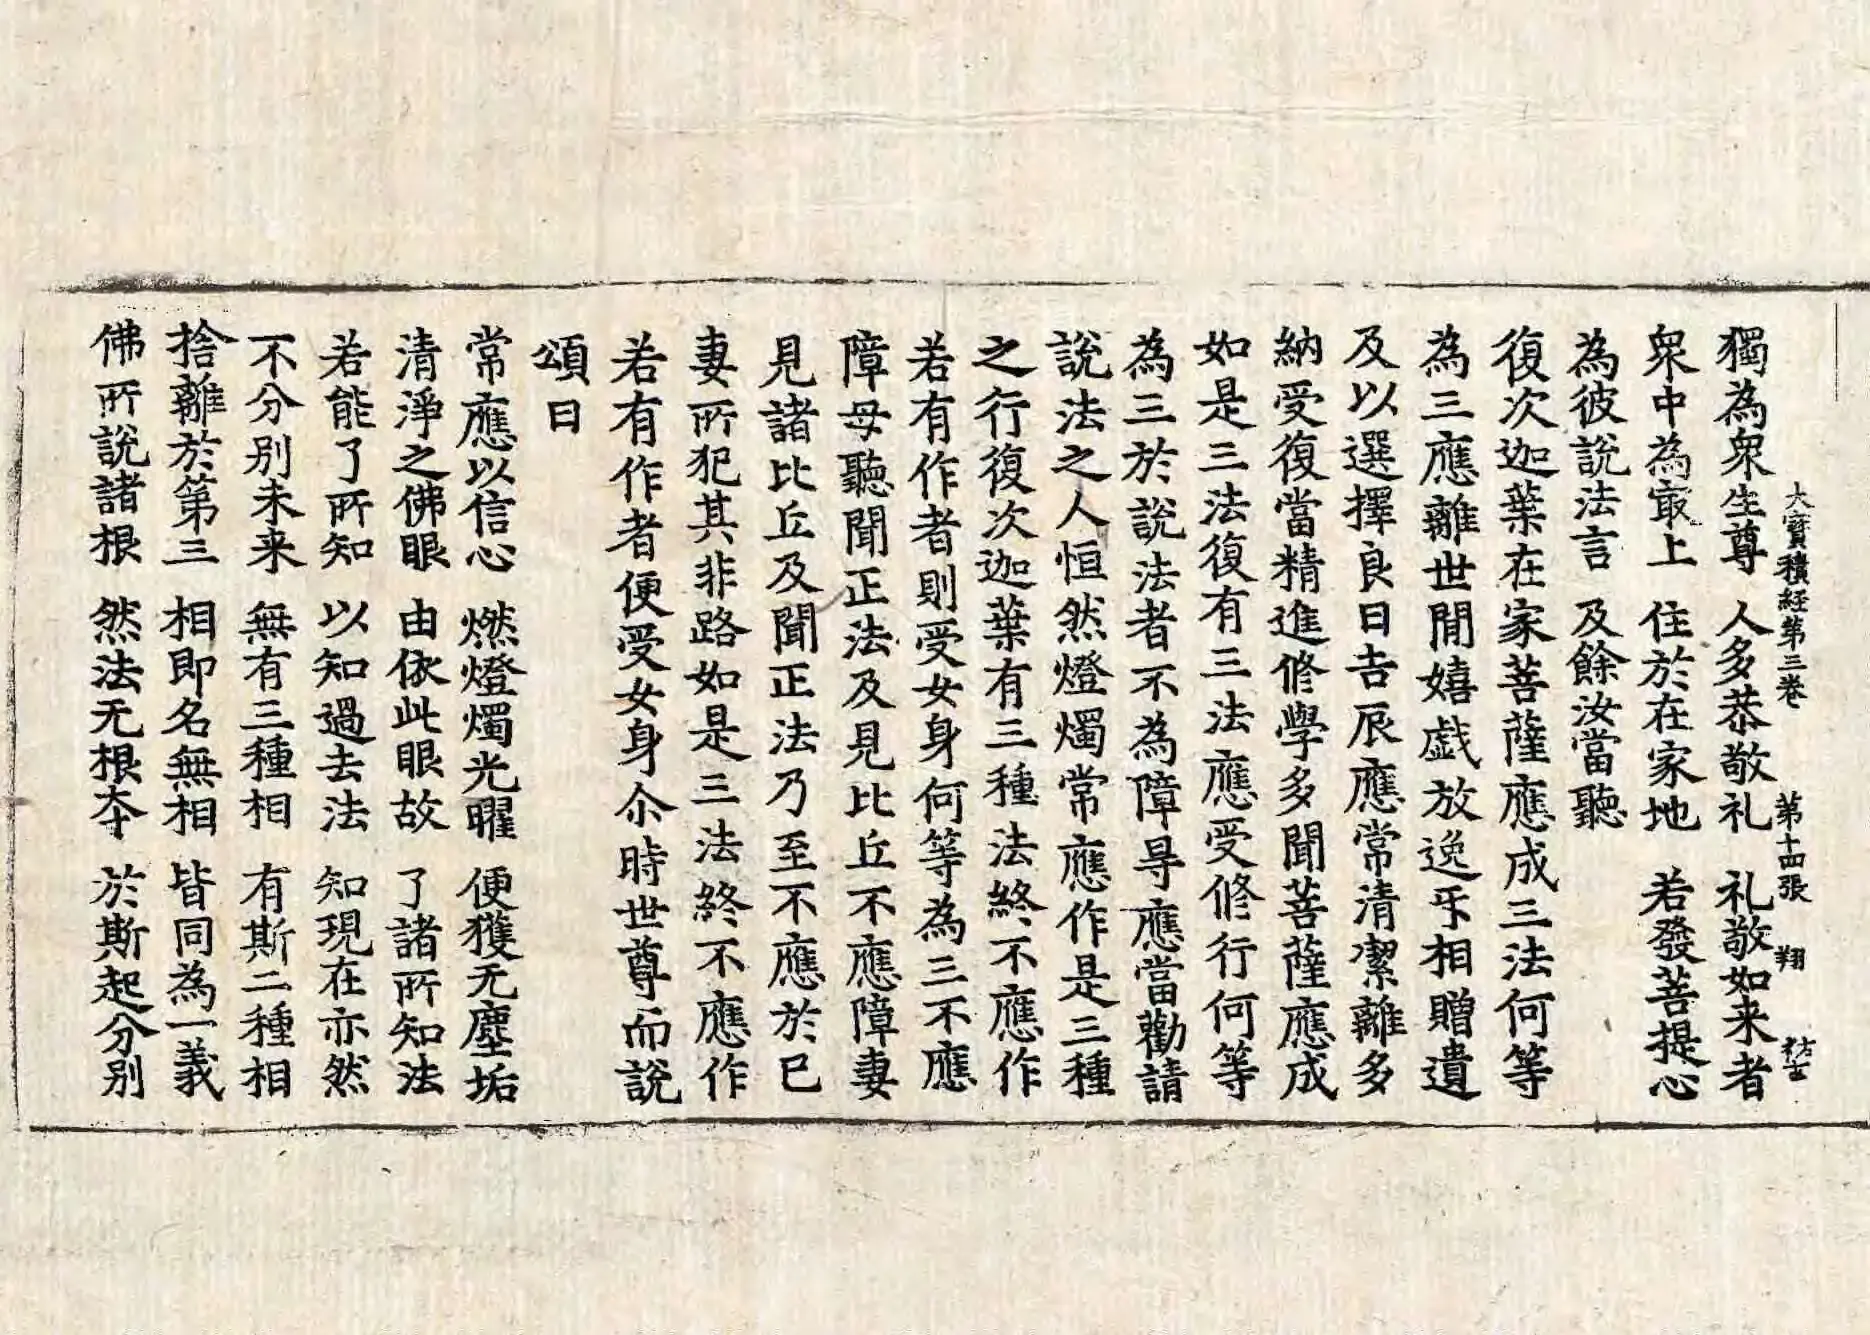 大寶積経第三卷 第十四張 翔
獨為衆生尊 人多恭敬礼 礼敬如来者
衆中為㝡上 住於在家地 若發菩提心
為彼說法言 及餘汝當聽
復次迦葉在家菩薩應成三法何等
為三應離世間嬉戯放逸㸦相贈遺
及以選擇良日吉辰應常清潔離多
納受復當精進修學多聞菩薩應成
如是三法復有三法應受修行何等
為三於說法者不為障㝵應當勸請
說法之人恒然燈燭常應作是三種
之行復次迦葉有三種法終不應作
若有作者則受女身何等為三不應
障母聽聞正法及見比丘不應障妻
見諸比丘及聞正法乃至不應於已
妻所犯其非路如是三法終不應作
若有作者便受女身尒時世尊而說
頌曰
常應以信心 燃燈燭光曜 便獲无塵垢
清淨之佛眼 由依此眼故 了諸所知法
若能了所知 以知過去法 知現在亦然
不分別未来 無有三種相 有斯二種相
捨離於第三 相即名無相 皆同為一義
佛所說諸根 然法无根夲 於斯起分別